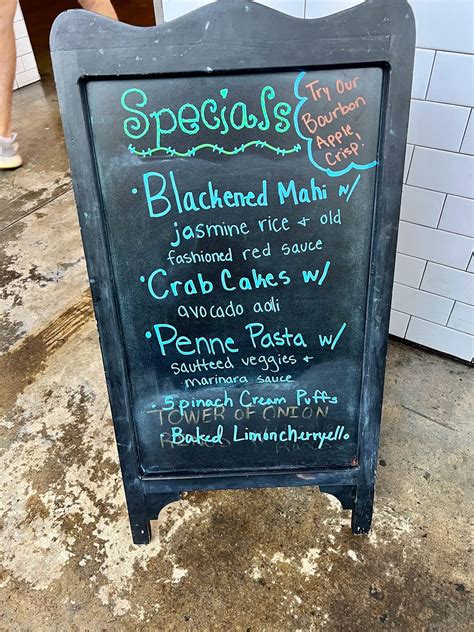 Specials
Try Our
Bourbon
Apple
Crisp!
• Blackened Mahi w/
jasmine rice + old
fashioned red sauce
• Crab Cakes w/
avocado aoli
• Penne Pasta w/
sautteed veggies +
marinara sauce
• Spinach Cream Puffs
TOWER OF ONION
Baked Limoncherryello